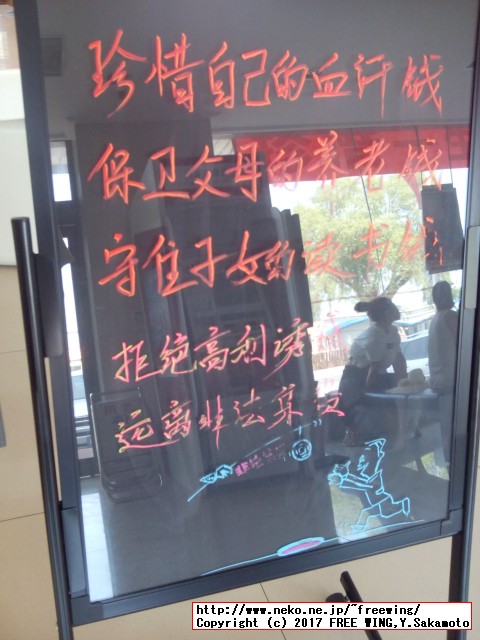 珍惜自己的血汗钱
保卫父母的养老钱
守住子女的读书钱
拒绝高利诱
远离非法集资
http://www.neko.ne.jp/~freewing/
Copyright (c) 2017 FREE WING,Y.Sakamoto